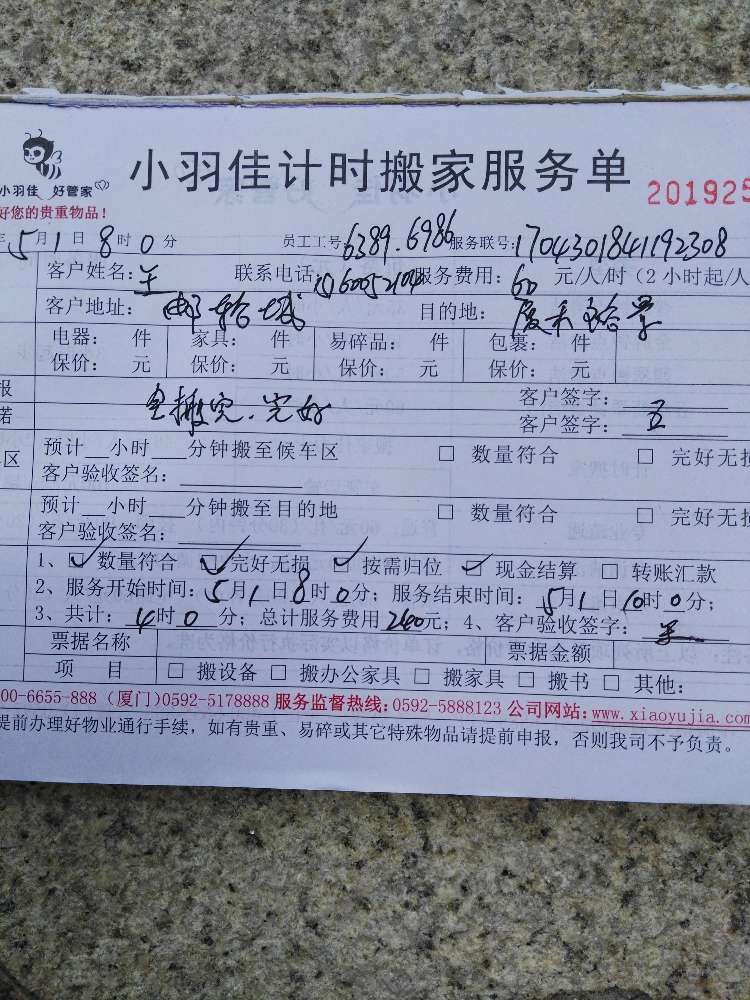 小羽佳 好管家
小羽佳计时搬家服务单 201925
好您的贵重物品！
年5月1日8时0分 员工工号:6389.6986 服务联号:1704301841192308
客户姓名:王 联系电话: 服务费用:60元/人/时（2小时起/人
客户地址: 目的地:
电器： 件 家具： 件 易碎品： 件 包裹： 件
保价： 元 保价： 元 保价： 元 保价： 元
报 客户签字:
诺 全搬完.完好 客户签字:王
区 预计__小时___分钟搬至候车区 □ 数量符合 □ 完好无损
客户验收签名:
预计__小时___分钟搬至目的地 □ 数量符合 □ 完好无损
客户验收签名:
1、☑ 数量符合 ☑ 完好无损 ☑ 按需归位 ☑ 现金结算 □ 转账汇款
2、服务开始时间:5月1日8时0分；服务结束时间:5月1日10时0分；
3、共计:4时0分；总计服务费用240元；4、客户验收签字:王
票据名称 票据金额
项 目 □ 搬设备 □ 搬办公家具 □ 搬家具 □ 搬书 □ 其他:
00-6655-888（厦门）0592-5178888 服务监督热线:0592-5888123 公司网站:www.xiaoyujia.com
提前办理好物业通行手续，如有贵重、易碎或其它特殊物品请提前申报，否则我司不予负责。